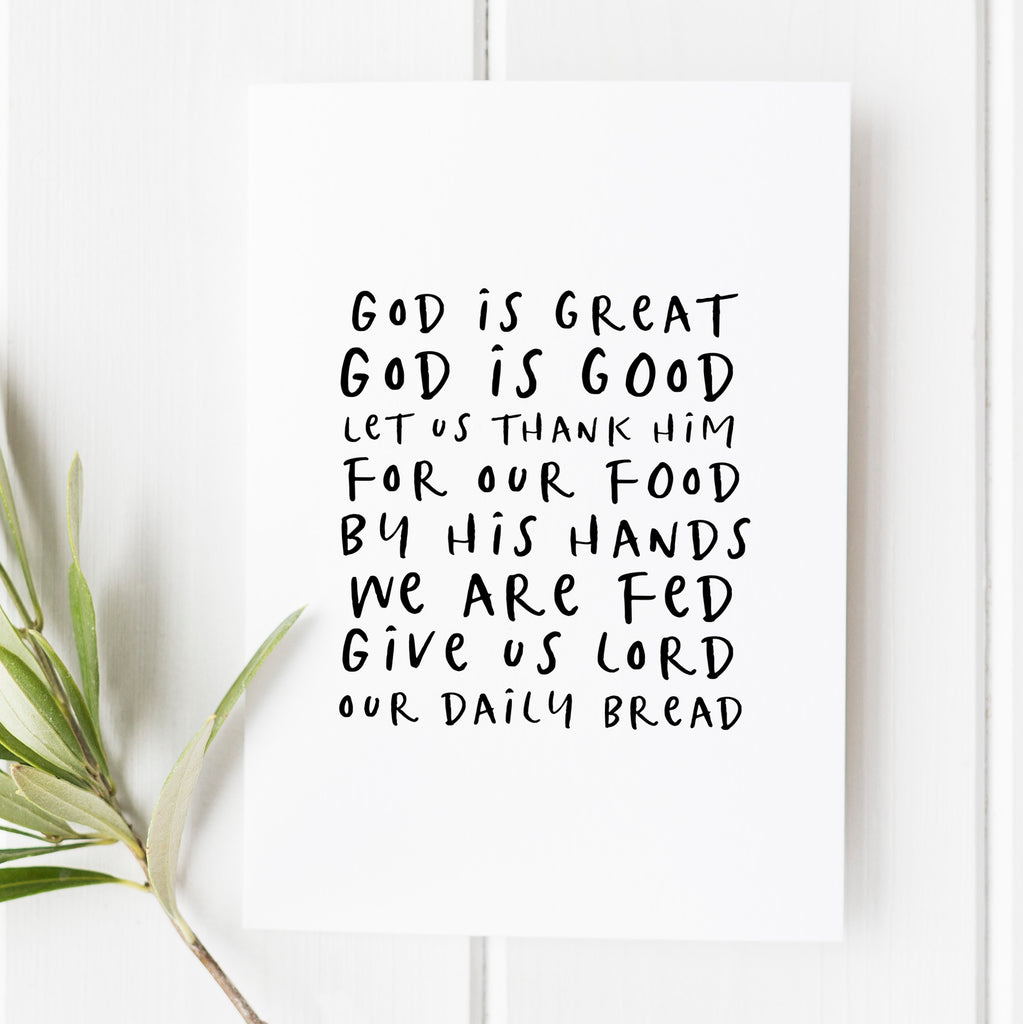 GOD IS GREAT
GOD IS GOOD
LET US THANK HIM
FOR OUR FOOD
BY HIS HANDS
WE ARE FED
GIVE US LORD
OUR DAILY BREAD